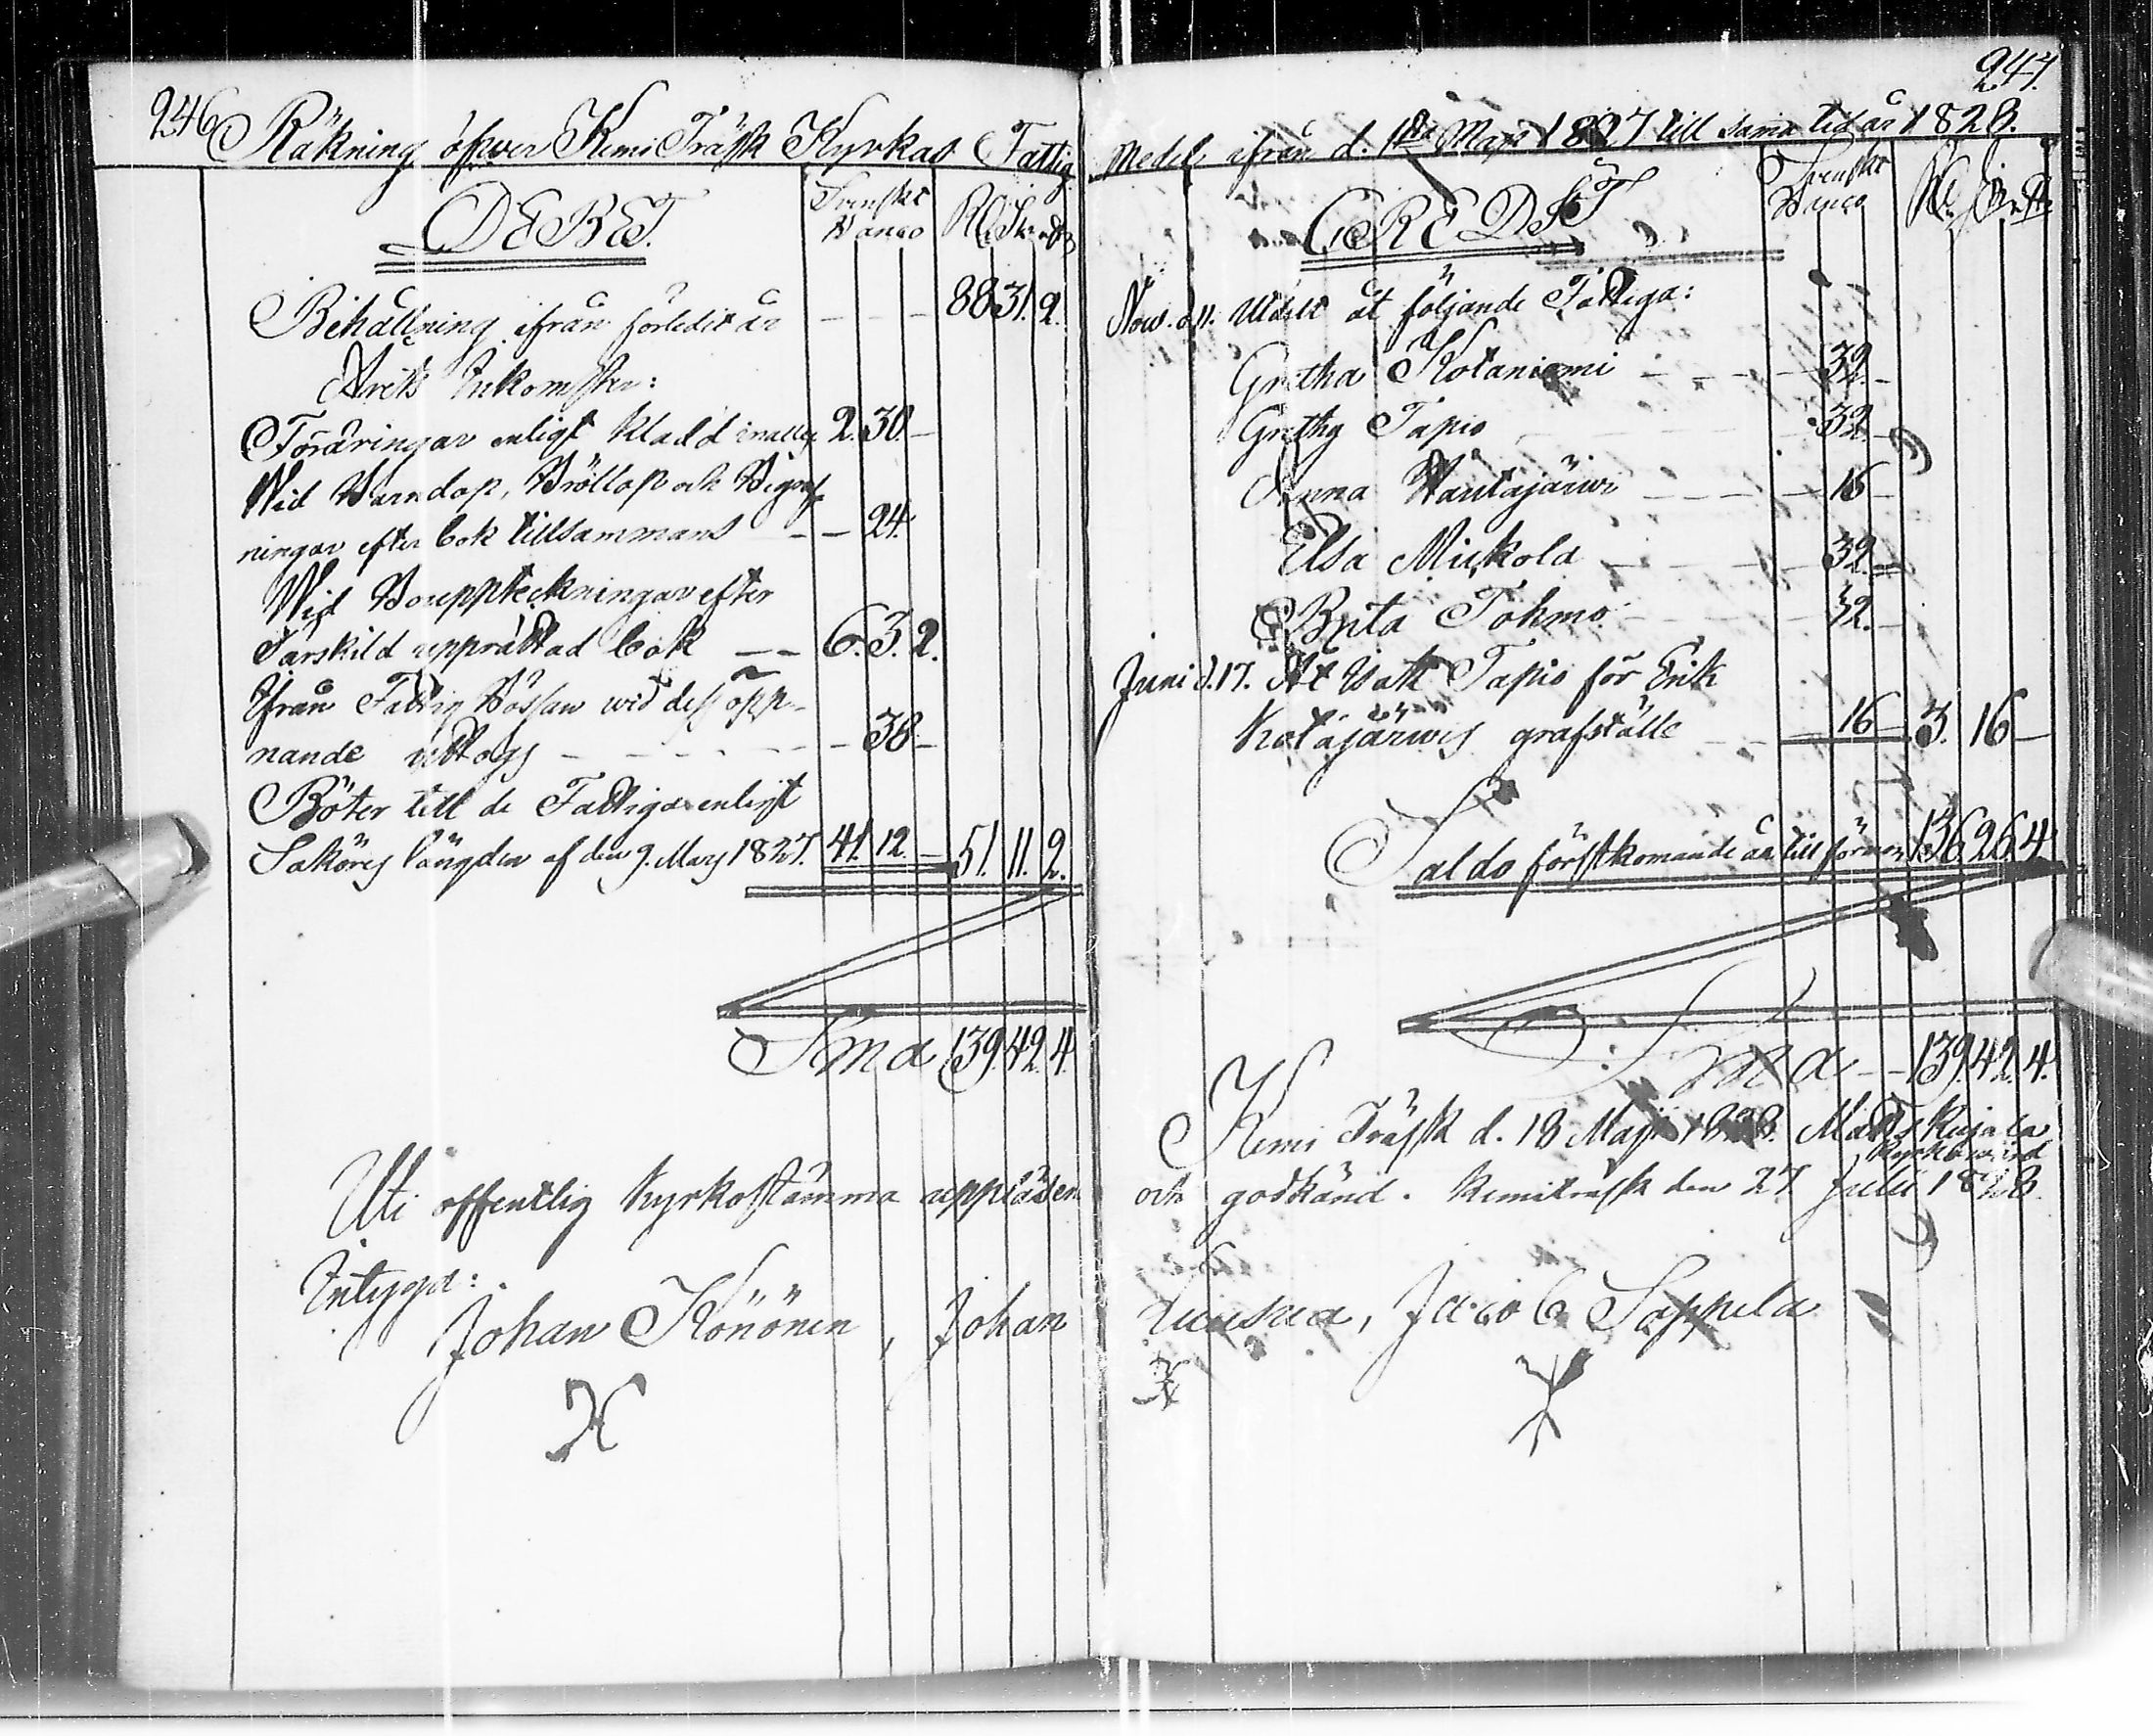 246
Räkning öfver Kemi Träsk Kyrkas Fattig
DEBET.
Svenskt Banco
Behållning ifrån förledit år — — — 88 31. 2.
Årets Inkomster:
Föräringar enligt kladd inalles 2. 30. —
Wid Barndop, Bröllop och Begraf
ningar efter bok tillsammans — — 24.
Wid Bouppteckningar efter
särskild upprättad bok — — 6. 3. 2.
Ifrån Fattig Bössan wid dess öpp-
nande uttogs — — — — 38 —
Böter till de Fattiga enligt
Saköres längden af den 9. Mars 1827. 41. 12 — 51. 11. 2.
Sma 139. 42. 4.
Uti offentlig kyrkostämma uppläsen
Intyga:
Johan Könönen, Johan
247.
Medel ifrån d. 1sta Maji 1827 till sama tid år 1828.
CREDIT
Svenskt Banco
Nov. d. 11. Utdelt åt följande Fattiga:
Gretha Kotaniemi — — — 32. —
Gretha Tapio — — — 32. —
Anna Wantajärwi — — — 16 —
Elsa Mickola — — — 32. —
Brita Tohmo — — — 32. —
Juni d. 17. At Tapio för Erik
Kotajärwis grafställe — — 16 — 3. 16 —
Saldo förstkomande år till förmon 136. 26. 4
Sma — — 139. 42. 4.
Kemi Träsk d. 18 Maji 1828. Matts Kujala
Kyrkowärd
och godkänd. Kemiträsk den 27 Julii 1828.
Luusua, Jacob Sappela